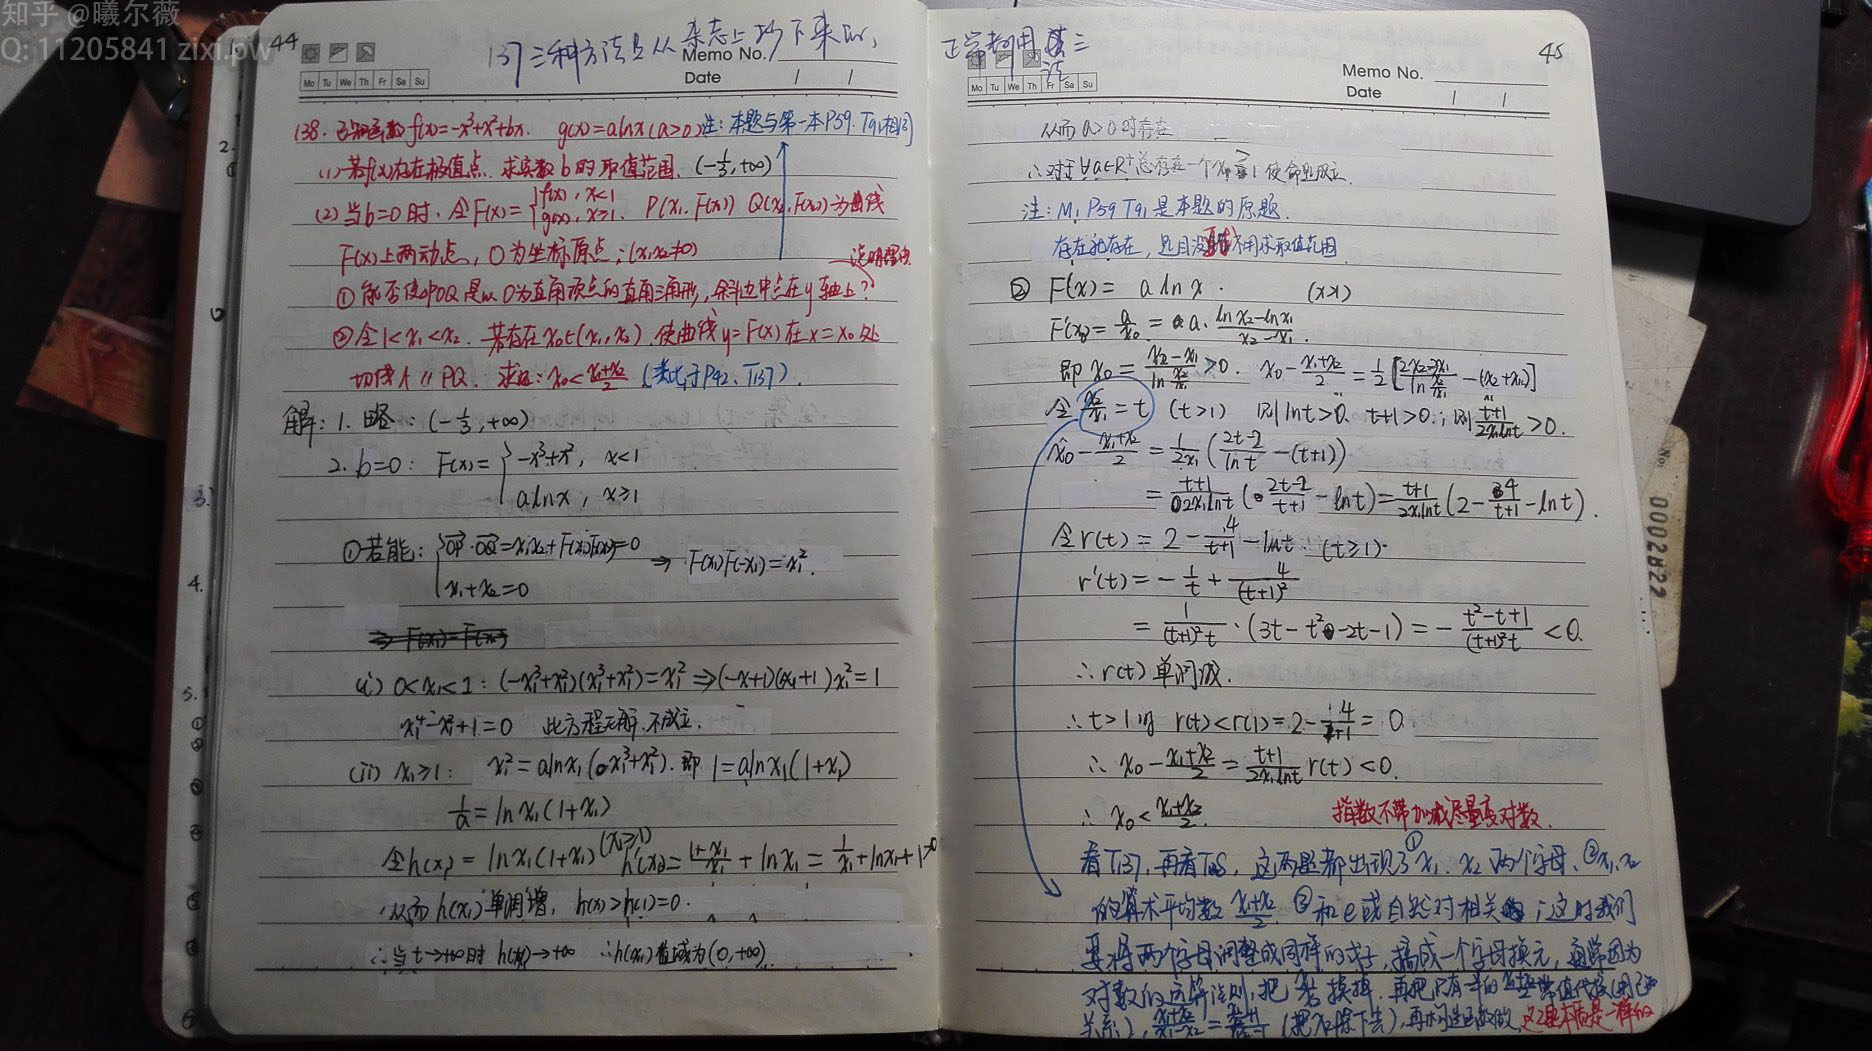 知乎 @曦尔薇
Q: 11205841 zixi.pw
44
137三种方法是从杂志上抄下来的,
Memo No.
Mo Tu We Th Fr Sa Su
Date / /
138. 已知函数f(x)=-x³+x²+bx. g(x)=alnx(a>0) 注:本题与第一本P59.T91相同
(1)若f(x)存在极值点. 求实数b的取值范围. (-1/3,+∞)
(2)当b=0时. 令F(x)={f(x), x<1 g(x), x≥1. P(x₁,F(x₁)) Q(x₂,F(x₂))为曲线
F(x)上两动点, O为坐标原点;(x₁x₂≠0) 说明理由.
①能否使△POQ是以O为直角顶点的直角三角形,斜边中点在y轴上?
②令1<x₁<x₂. 若存在x₀∈(x₁,x₂) 使曲线y=F(x)在x=x₀处
切线 // PQ. 求证:x₀<(x₁+x₂)/2 (类比于P42、T137).
解: 1. 略:(-1/3,+∞)
2. b=0: F(x)={-x³+x², x<1
alnx, x≥1
①若能:{OP·OQ=x₁x₂+F(x₁)F(x₂)=0 ⇒ F(x₁)F(-x₁)=x₁².
x₁+x₂=0
(i) 0<x₁<1: (-x₁³+x₁²)(x₁³+x₁²)=x₁² ⇒(-x+1)(x₁+1)x₁²=1
x₁⁴-x₁²+1=0 此方程无解.不成立.
(ii) x₁≥1: x₁²=alnx₁(x₁³+x₁²). 即 1=alnx₁(1+x₁)
1/a=lnx₁(1+x₁)
令h(x₁)=lnx₁(1+x₁) (x₁≥1) h'(x₁)=(1+x₁)/x₁+lnx₁=1/x₁+lnx₁+1>0
从而h(x₁)单调增, h(x₁)>h(1)=0.
∴当t→+∞时 h(x₁)→+∞ ∴h(x₁)值域为(0,+∞)
正常都用法三
45
Mo Tu We Th Fr Sa Su
Memo No.
Date / /
从而a>0时存在
∴对于∀a∈R⁺总存在一个x₁≥1 使命题成立.
注: M₁ P59 T91是本题的原题.
存在就存在, 题目没 不用求取值范围.
② F(x)= alnx. (x>1)
F'(x₀)=a/x₀=a·(lnx₂-lnx₁)/(x₂-x₁).
即x₀=(x₂-x₁)/ln(x₂/x₁)>0. x₀-(x₁+x₂)/2=1/2[(2x₂-2x₁)/ln(x₂/x₁)-(x₂+x₁)]
令x₂/x₁=t (t>1) 则lnt>0. t+1>0.; 则(t+1)/(2x₁lnt)>0.
x₀-(x₁+x₂)/2=1/(2x₁)((2t-2)/lnt-(t+1))
=(t+1)/(2x₁lnt)((2t-2)/(t+1)-lnt)=(t+1)/(2x₁lnt)(2-4/(t+1)-lnt).
令r(t)=2-4/(t+1)-lnt. (t≥1).
r'(t)=-1/t+4/(t+1)²
=1/((t+1)²t)·(3t-t²-2t-1)=-(t²-t+1)/((t+1)²t)<0.
∴r(t)单调减.
∴t>1时 r(t)<r(1)=2-4/(1+1)=0.
∴x₀-(x₁+x₂)/2=(t+1)/(2x₁lnt)r(t)<0.
∴x₀<(x₁+x₂)/2.
指数不带加减尽量变对数.
看T137,再看T138, 这两题都出现了①x₁、x₂两个字母、②x₁,x₂
的算术平均数(x₁+x₂)/2, ③和e或自然对相关;这时我们
要将两个字母调整成同样的式子,搞成一个字母换元,通常因为
对数的运算法则,把 换掉. 再把
关系), (把x₂除下去),再构造函数做, 这2题本质是一样的
0002822